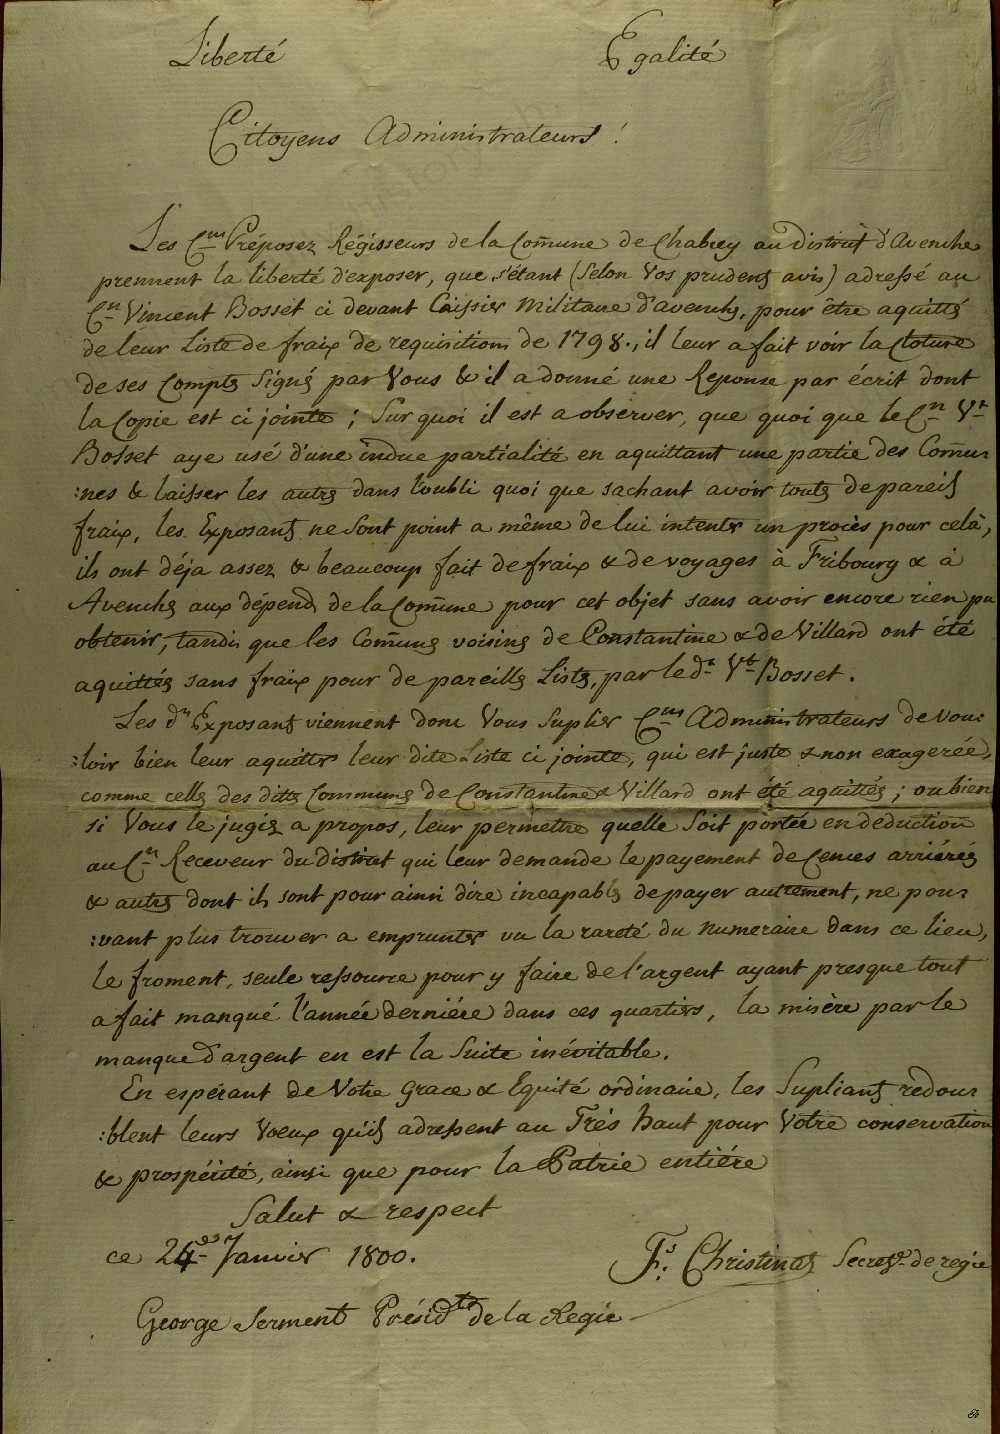 Liberté Egalité
Citoyens Administrateurs !
Les Cns Préposez Régisseurs de la Com̄une de Chabrey au District d'Avenche
prennent la liberté d'exposer, que s'étant (Selon Vos prudens avis) adressé au
Cn Vincent Bosset ci devant Caissier Militaire d'avenches, pour être aquittés
de leur Liste de fraix de requisitions de 1798., il leur a fait voir la Cloture
de ses Comptes Signés par Vous & il a donné une Reponse par écrit dont
la Copie est ci jointe ; Sur quoi il est a observer, que quoi que le Cn Vt
Bosset aye usé d'une indue partialité en aquittant une partie des Com̄u:
:nes & laisser les autres dans l'oubli quoi que sachant avoir toutes de pareils
fraix, les Exposans ne Sont point a même de lui intenter un procès pour celà,
ils ont déja assez & beaucoup fait de fraix & de voyages à Fribourg & à
Avenches aux dépends de la Com̄une pour cet objet sans avoir encore rien pu
obtenir, tandis que les Com̄unes voisines de Constantine & de Villard ont été
aquittées sans fraix pour de pareilles Listes, par le dt Vt Bosset.
Les dts Exposans viennent donc Vous Suplier Cns Administrateurs de vou:
:loir bien leur aquitter leur dite Liste ci jointe, qui est juste & non exagerée,
comme celles des dittes Communes de Constantine & Villard ont été aquittées ; ou bien
si Vous le jugiez a propos, leur permettre quelle Soit portée en deduction
au Cn Receveur du District qui leur demande le payement de Cences arriérées
& autres dont ils sont pour ainsi dire incapables de payer autrement, ne pou:
:vant plus trouver a emprunter vu la rareté du Numeraire dans ce lieu,
le froment, seule ressource pour y faire de l'argent ayant presque tout
a fait manqué l'année derniére dans ces quartiers, la misère par le
manque d'argent en est la Suite inévitable.
En espérant de Votre Grace & Equité ordinaire, les Suplians redou:
:blent leurs Voeux qu'ils adressent au Très haut pour Votre conservation
& prospérité, ainsi que pour la Patrie entiére
Salut & respect
ce 24es Janvier 1800.
Fs. Christinas Secrete de regie
George Serment Présidte de la Regie